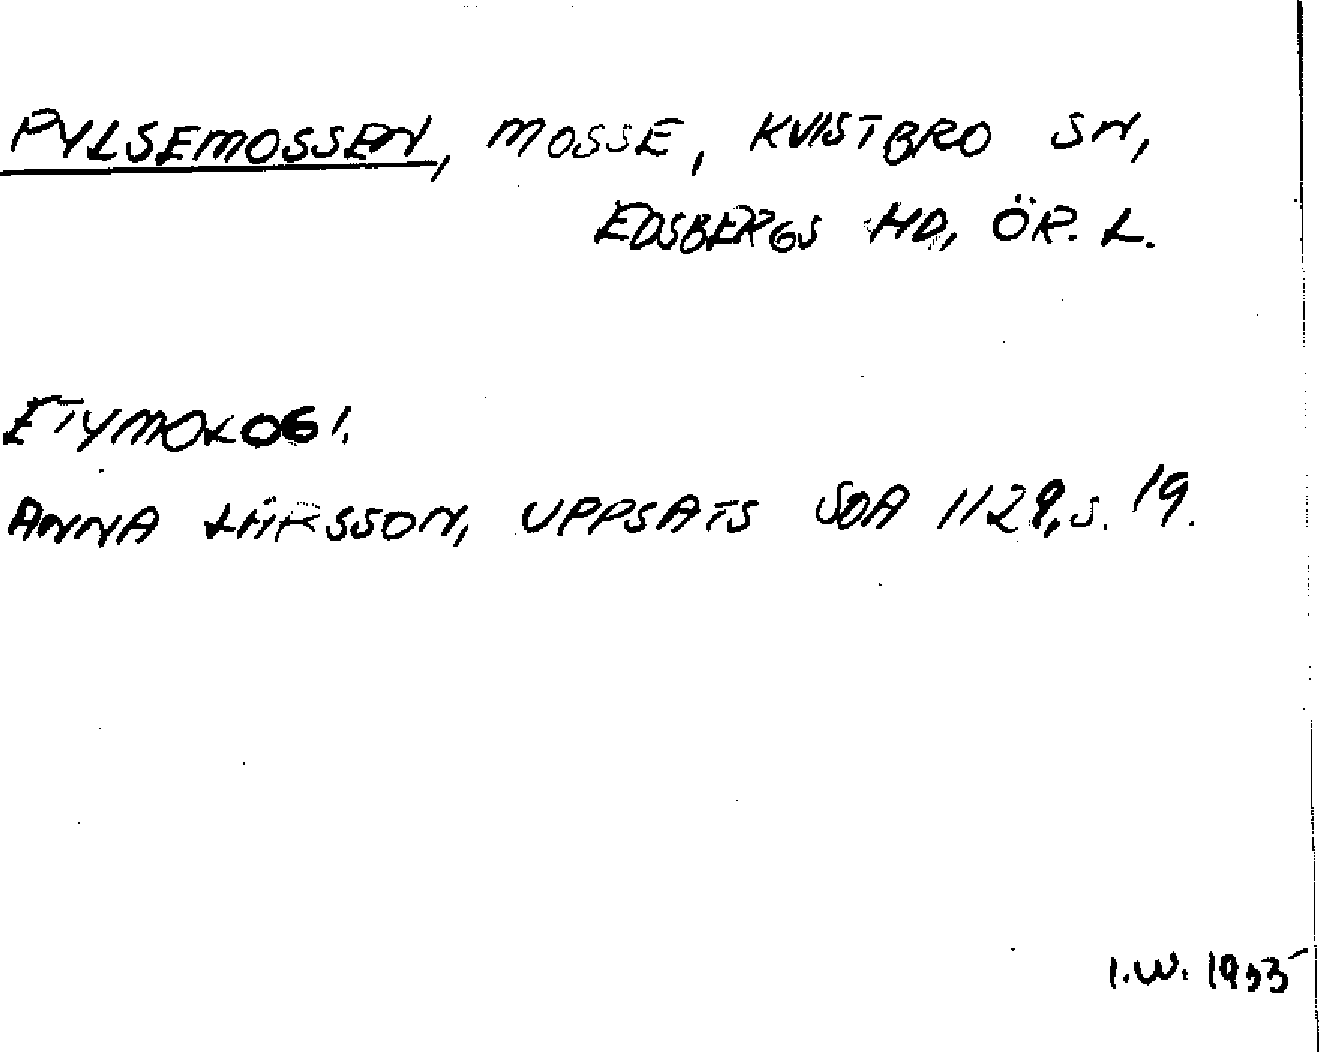 PYLSEMOSSEN, MOSSE, KVISTBRO SN,
EDSBERGS HD, ÖR. L.
ETYMOLOGI.
ANNA LARSSON, UPPSATS SOA 1129, S. 19.
I.W.